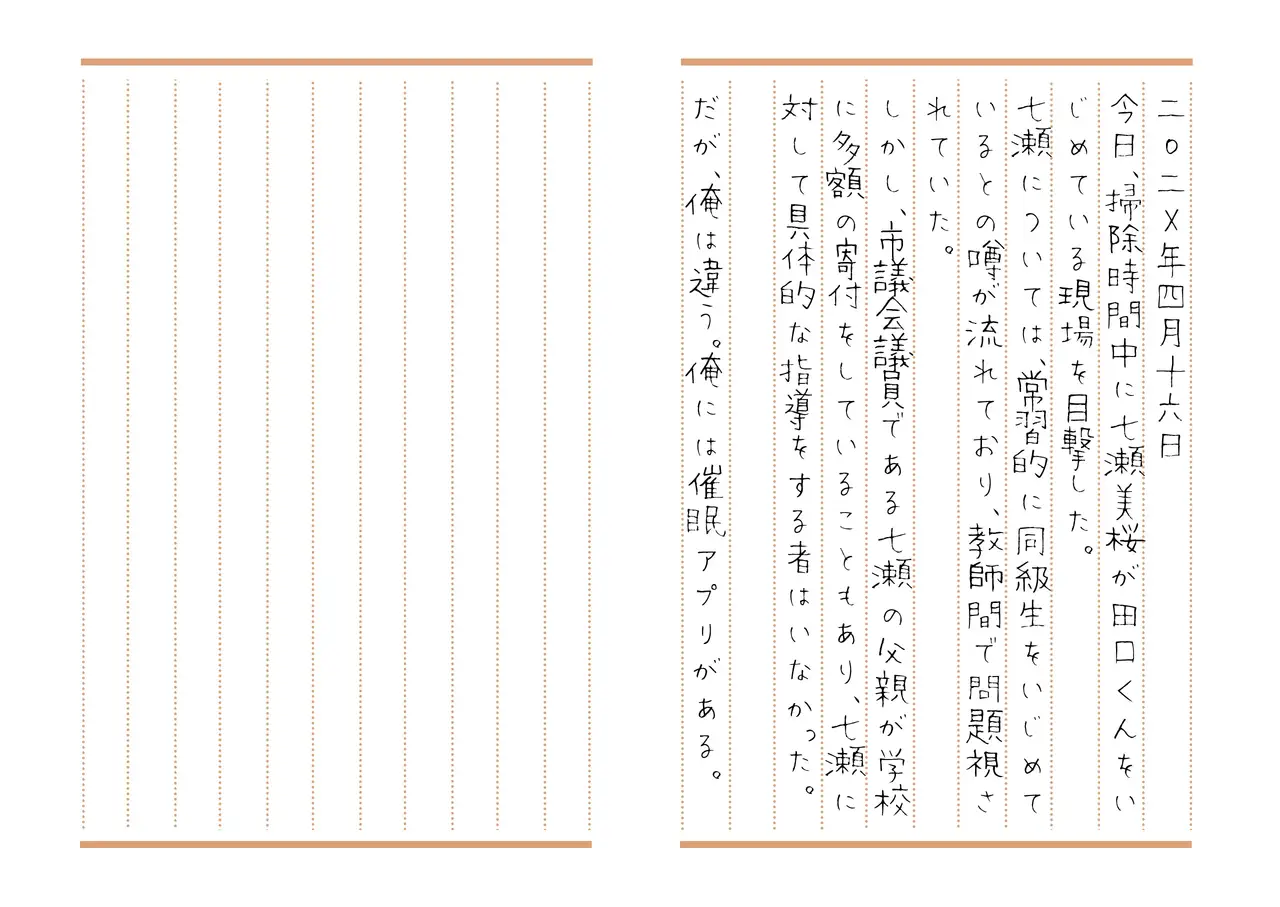 二〇二X年四月十六日
今日、掃除時間中に七瀬美桜が田口くんをい
じめている現場を目撃した。
七瀬については、常習的に同級生をいじめて
いるとの噂が流れており、教師間で問題視さ
れていた。
しかし、市議会議員である七瀬の父親が学校
に多額の寄付をしていることもあり、七瀬に
対して具体的な指導をする者はいなかった。
だが、俺は違う。俺には催眠アプリがある。